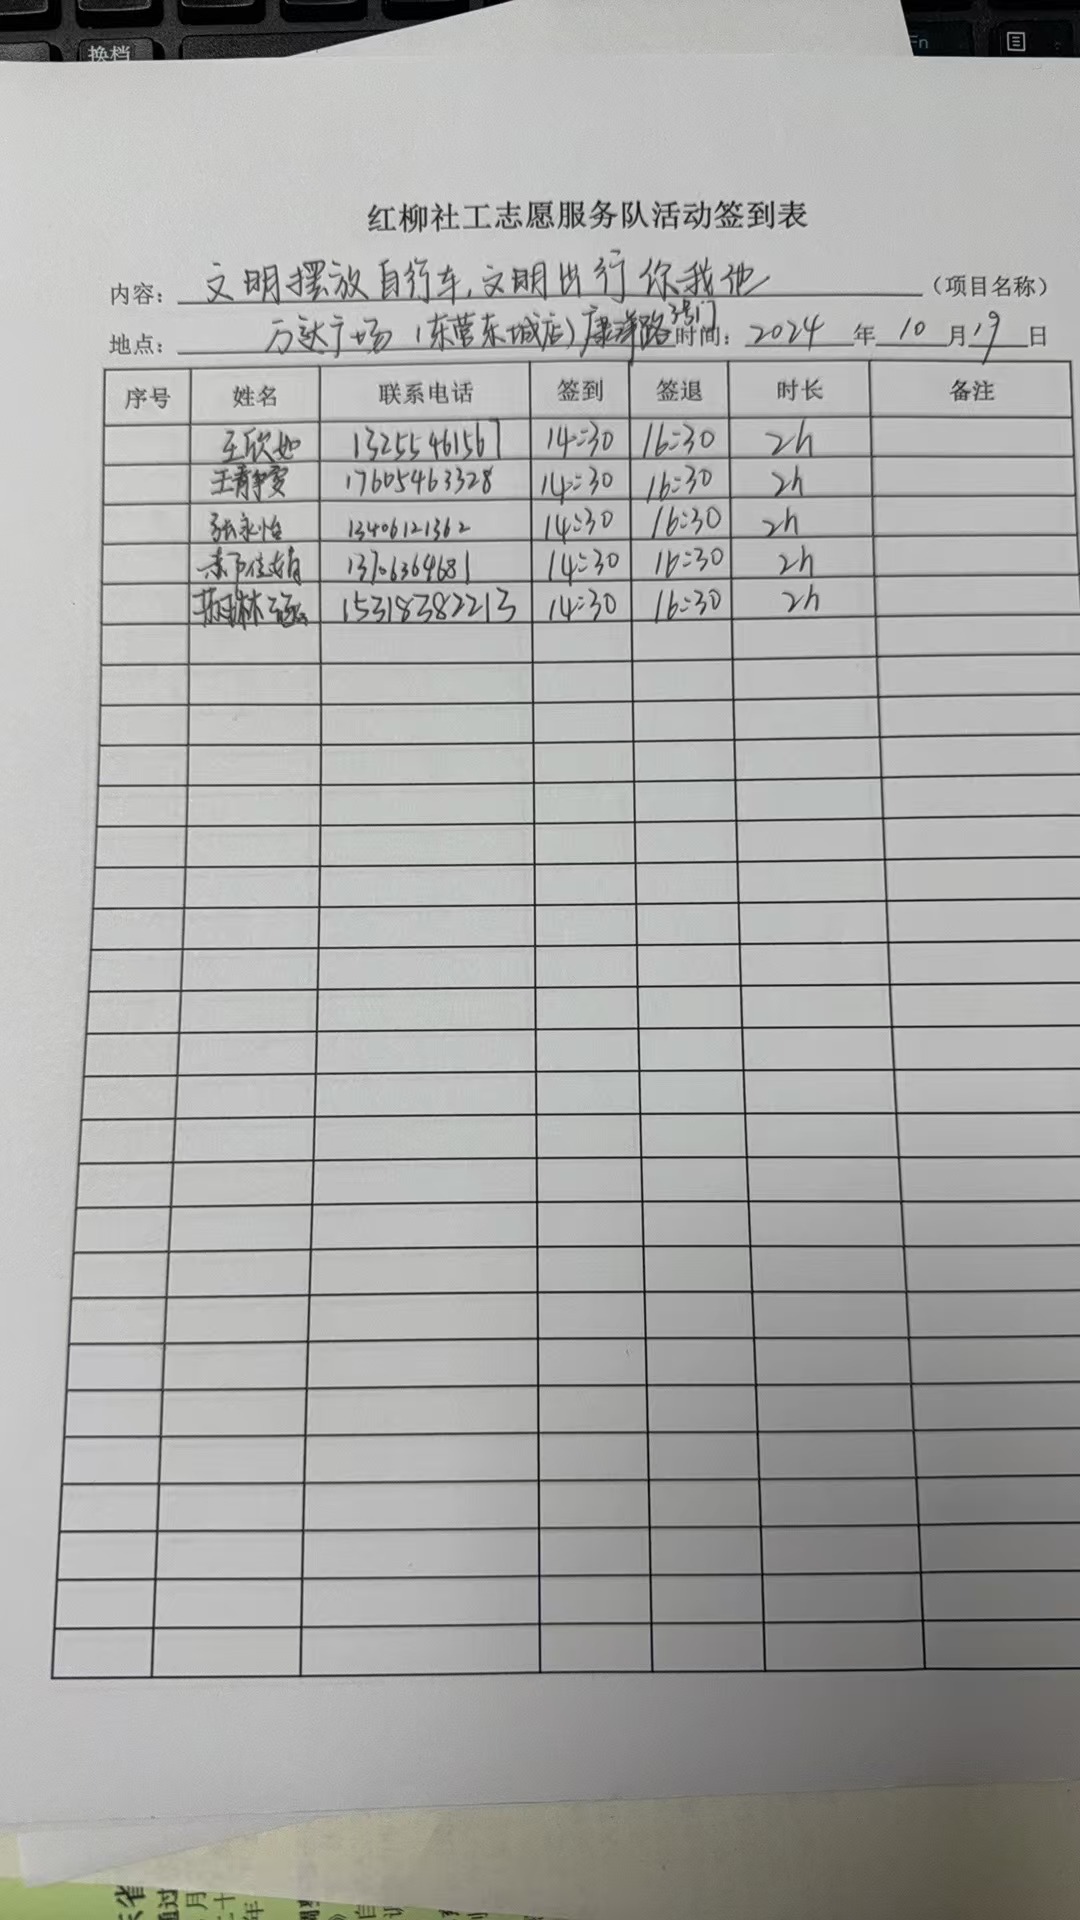 换档
Fn
红柳社工志愿服务队活动签到表
内容： 文明摆放自行车,文明出行你我他 （项目名称）
地点： 万达广场（东营东城店）康洋路3号门 时间： 2024 年 10 月 19 日
序号 姓名 联系电话 签到 签退 时长 备注
王欣如 13255461567 14:30 16:30 2h
王静雯 17605463328 14:30 16:30 2h
张永怡 13406121362 14:30 16:30 2h
13706364681 14:30 16:30 2h
15318382213 14:30 16:30 2h